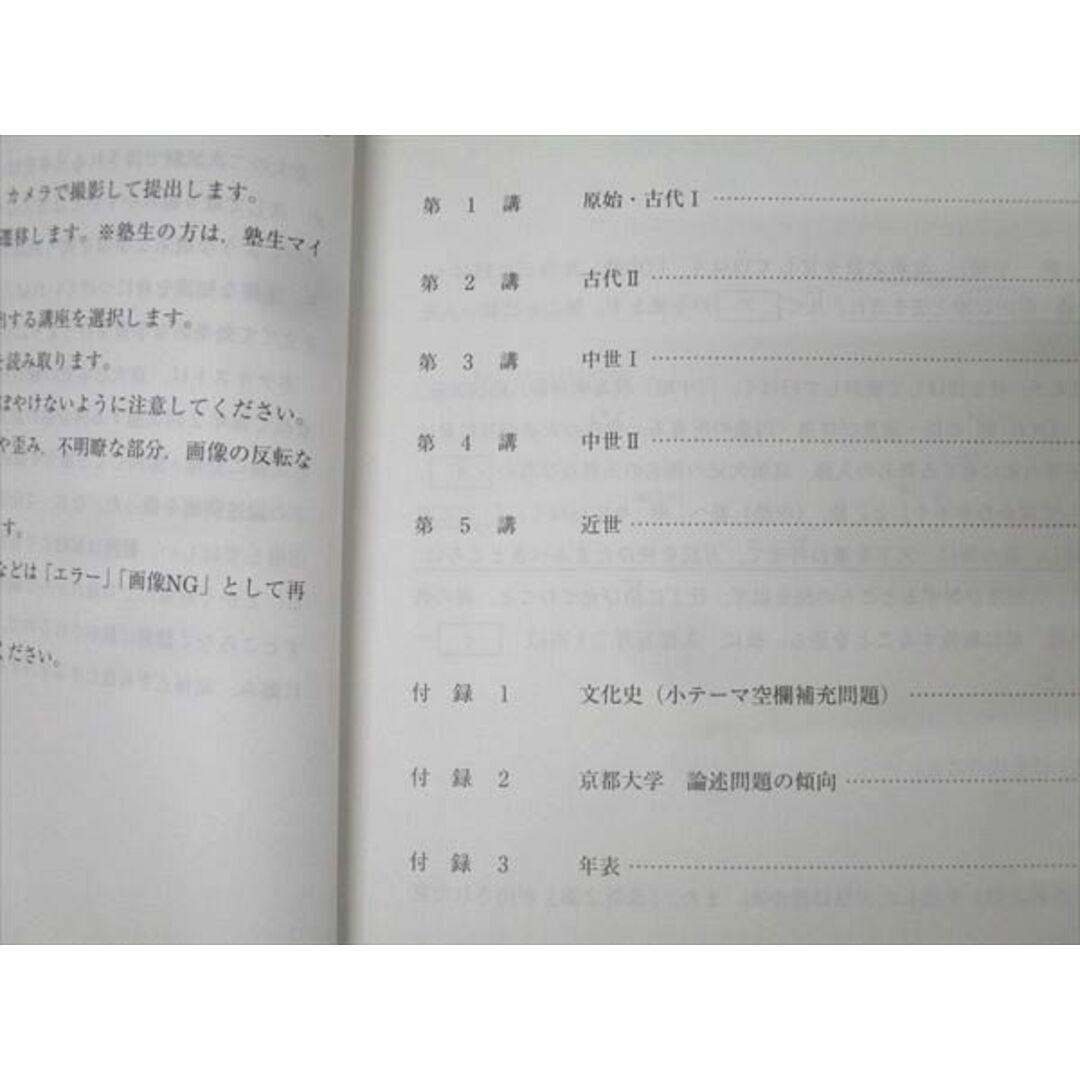 カメラで撮影して提出します。
遷移します。※塾生の方は，塾生マイ
出する講座を選択します。
を読み取ります。
ぼやけないように注意してください。
や歪み，不明瞭な部分，画像の反転な
す。
などは「エラー」「画像NG」として再
ください。
第 1 講 原始・古代Ⅰ
第 2 講 古代Ⅱ
第 3 講 中世Ⅰ
第 4 講 中世Ⅱ
第 5 講 近世
付 録 1 文化史（小テーマ空欄補充問題）
付 録 2 京都大学　論述問題の傾向
付 録 3 年表